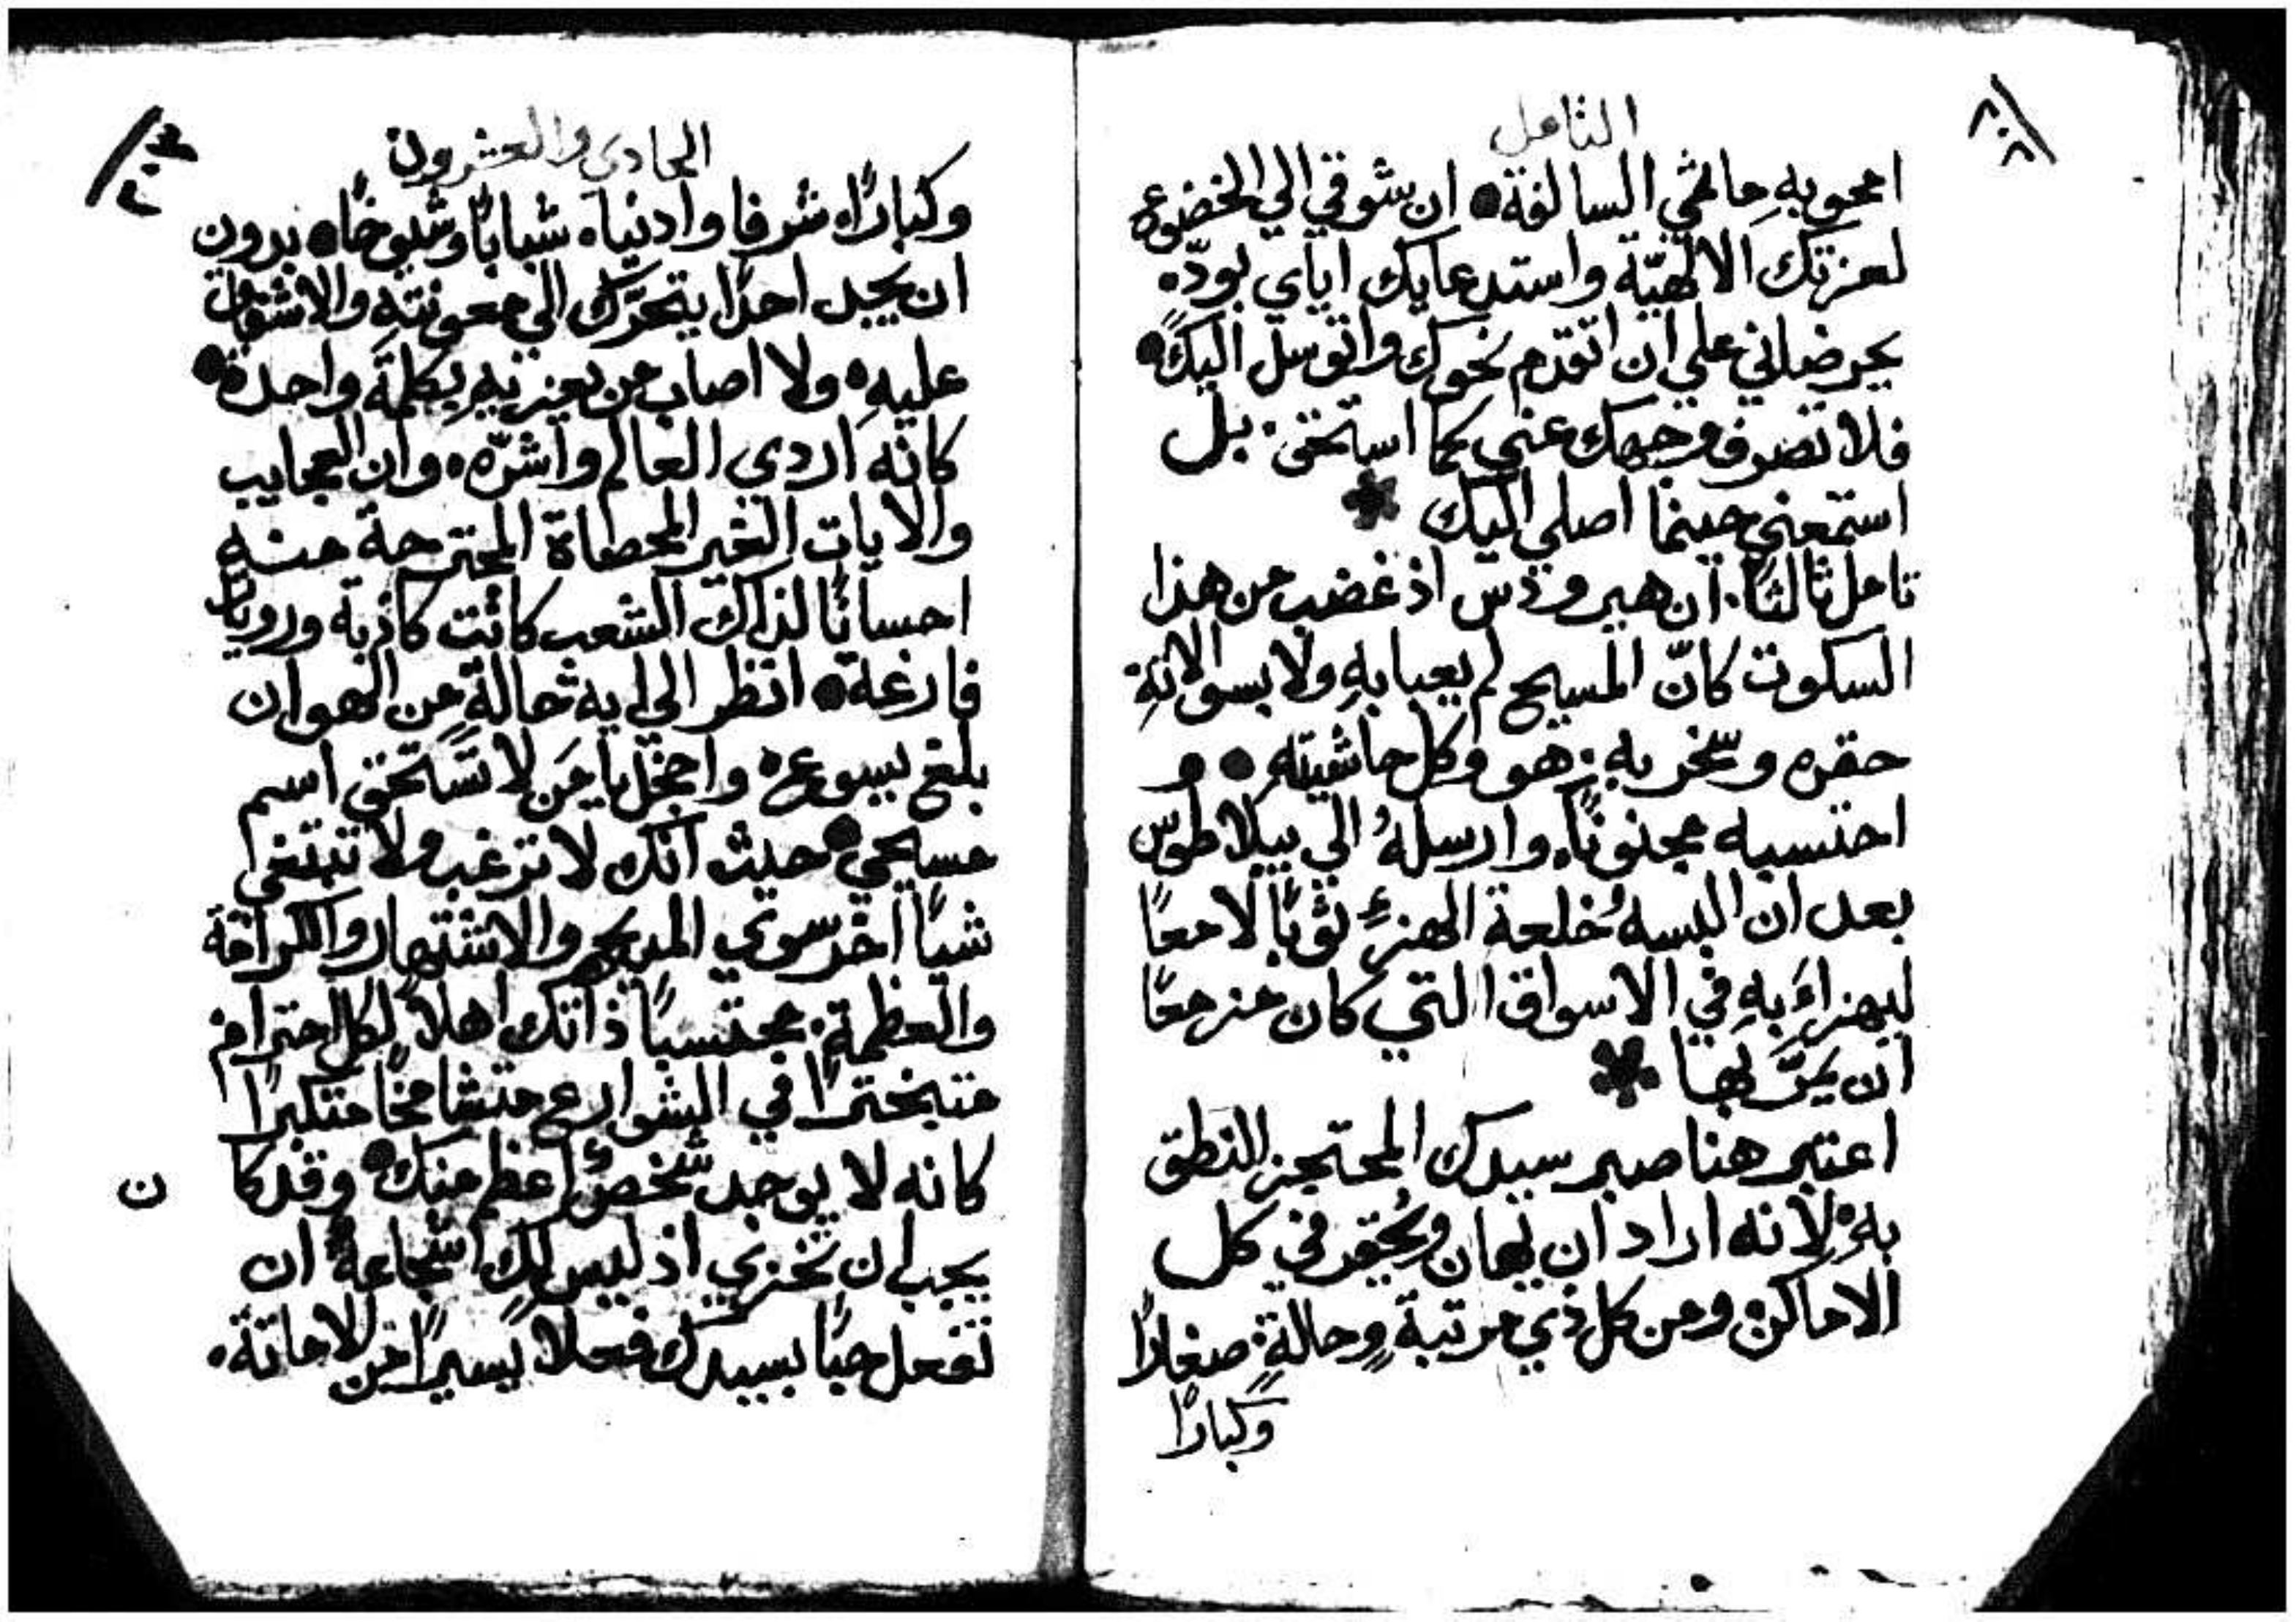 التامل
امحو بهِ ماثمي السالفة • ان شوقي الي الخضوع
لعزتك الالهيّة واستدعايك اياي بودّ.
يحرضاني علي ان اتقدم نحوك واتوسل اليك •
فلا تصرف وجهك عني كما استحق. بل
استمعني حينما اصلي اليك *
تامل ثالثًا. ان هيرودس اذ غضب من هذا
السكوت كانّ المسيح لم يعبا بهِ ولا بسوالاتهِ.
حقره وسّخر به. هو وكل حاشيته • و
احتسبه مجنونًا. وارسلهُ الي بيلاطوس
بعد ان البسهُ خلعة الهزءِ ثوبًا لامعًا
ليهزاءَ بهِ في الاسواق التي كان مزمعًا
ان يمرّ بها *
اعتبر هنا صبر سيدك المحتجز النطق
به. لانه اراد ان يُهان ويُحقر في كل
الاماكن. ومن كل ذي مرتبةٍ وحالةٍ. صغارًا
وكبارًا
الحادي والعشرون
وكبارًا. شرفا وادنيا. شبابًا وشيوخًا. بدون
ان يجد احدًا يتحرّك الي معونتهِ والاشفاق
عليهِ. ولا اصاب من يعزيهِ بكلمةٍ واحدة •
كانه اردي العالم واشرّه. وان العجايب
والايات الغير المحصاة المجترحة منه
احسانًا لذاك الشعب كانت كاذبة ورويًا
فارغة • انظر الي اية حالةٍ من الهوان
بلغ يسوع. واخجل يا مَن لا تستحق اسم
مسيحي • حيث انك لا ترغب ولا تبتغي
شيًا اخر سوي المديح والاشتهار والكرامة
والعظمة. محتسبًا ذاتك اهلًا لكل احترام
متبخترًا في الشوارع متشامخًا متكبرًا
كانه لا يوجد شخصٌ اعظم منك • وقد كا ن
يجب ان تخزي اذ ليس لك شجاعةٌ ان
تفعل حبًا بسيدك فعلًا يسيرًا من الاماتة.